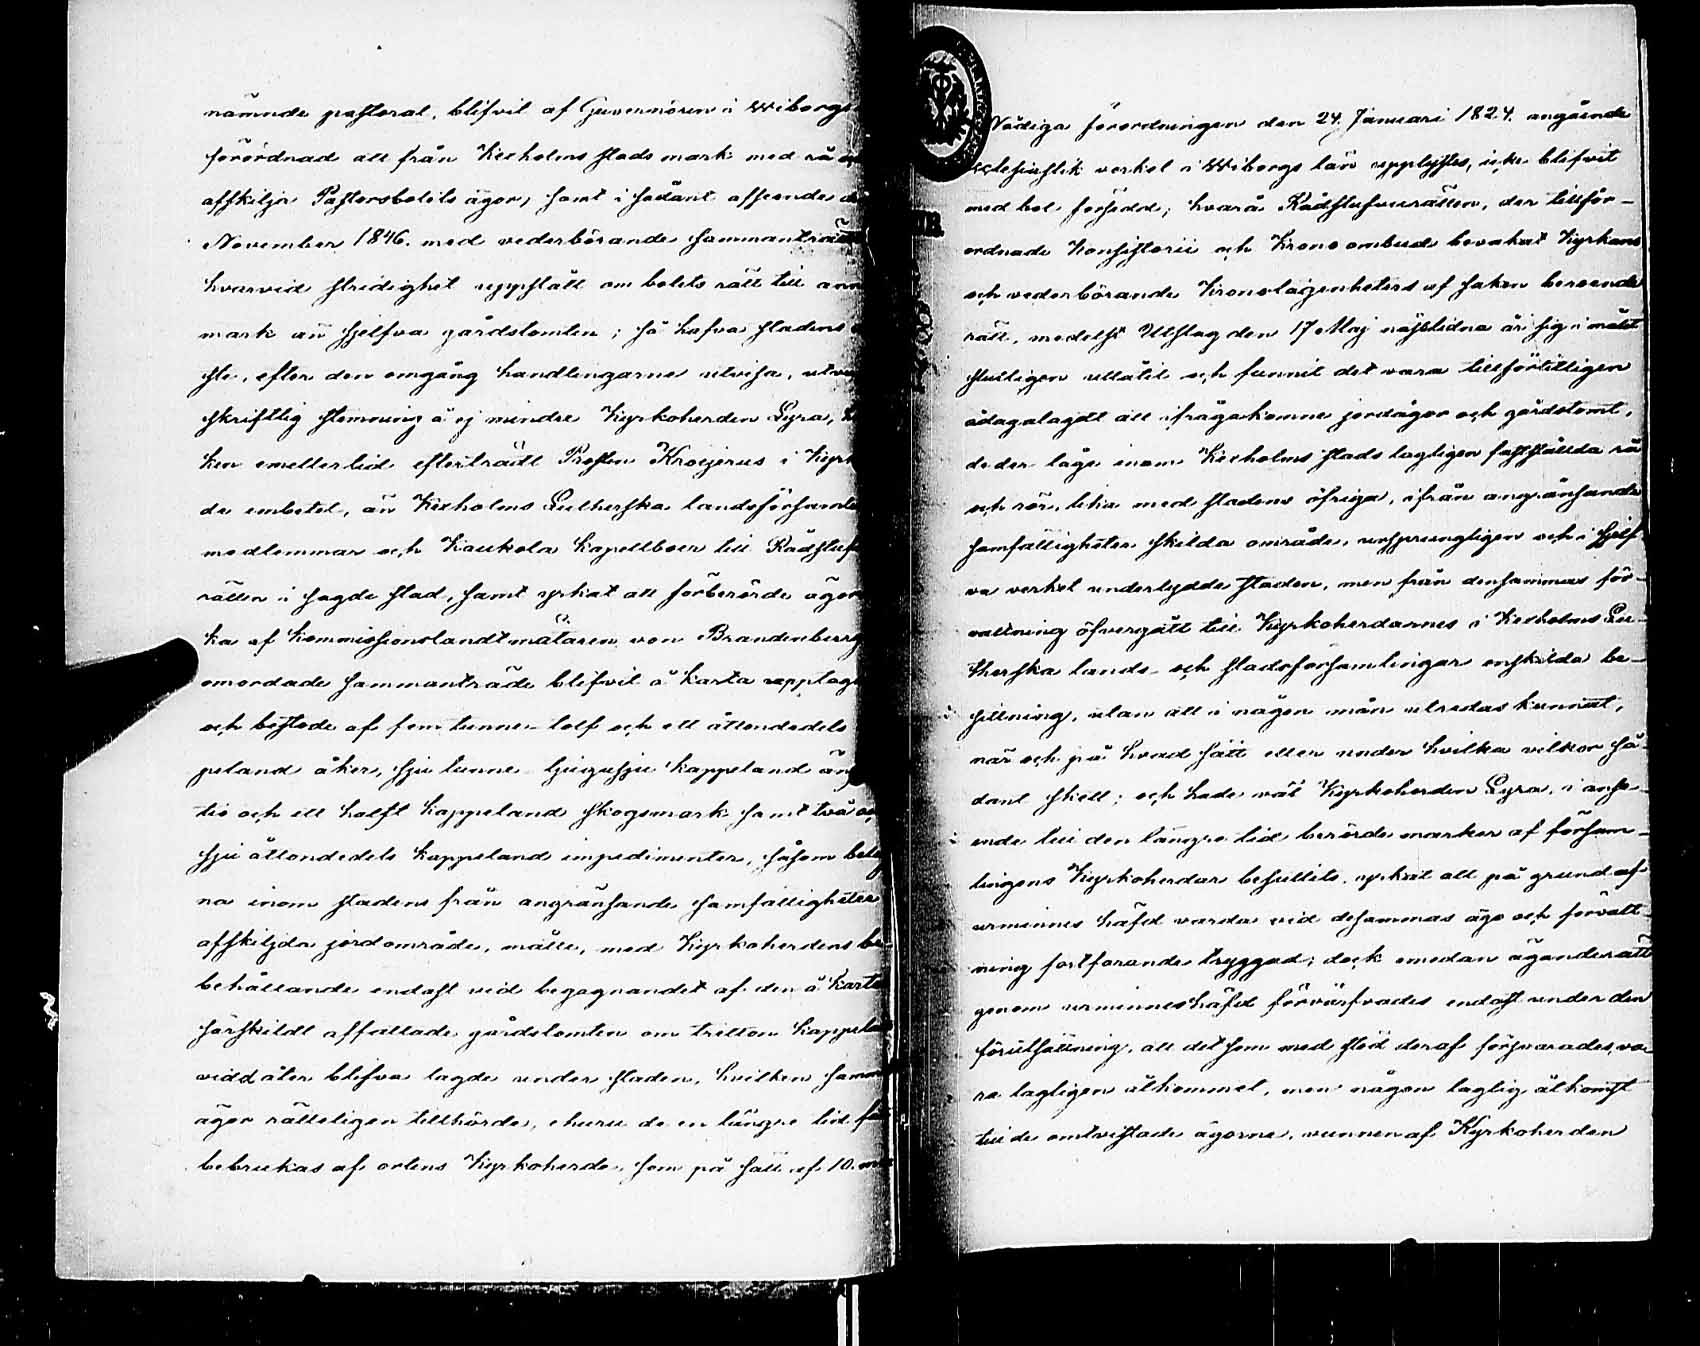 nämnde pastorat, blifvit af Guvernören i Wiborgs
förordnad att från Kexholms stads mark med rå
affskilja Pastorsbolets ägor, samt i sådant afseende
November 1846. med vederbörande sammanträdt
hvarvid stridighet uppstått om bolets rätt till ann
mark än sjelfva gårdstomten; så hafva stadens
ste, efter den omgång handlingarne utvisa, utver
skriftlig stemning å ej mindre Kyrkoherden Lyra,
ken emellertid efterträdt Prosten Kroijerus i Kyrk
de embetet, än Kexholms Lutherska landsförsamle
medlemmar och Kaukola Kapellboer till Rådstuf
rätten i sagde stad, samt yrkat att förberörde ägor
ka af kommissionslandtmätaren von Brandenburg
omordade sammanträde blifvit å karta upptag
och bestode af fem tunne- tolf och ett åttondedels
peland åker, sju tunne- tjugusju kappeland än
tio och ett halft kappeland skogsmark samt två oc
sju åttondedels kappeland impedimenter, såsom beläg
na inom stadens från angränsande samfälligheter
affskiljda jordområde, måtte, med Kyrkoherdens bi-
behållande endast vid begagnandet af den å Karta
särskildt affattade gårdstomten om tretton kappeland
vidd åter blifva lagde under staden, hvilken samme
ägor rätteligen tillhörde, ehuru de en längre tid få
bebrukas af ortens Kyrkoherde, som på sätt af 10.
Nådiga förordningen den 24. Januari 1824. angående
ecclesiastik verket i Wiborgs län upplystes, icke blifvit
med bol försedd; hvarå Rådstufvurätten, der tillför-
ordnade Konsistorii och Krono ombud bevakat Kyrkans
och vederbörande Kronolägenheters af saken beroende
rätt, medelst Utslag den 17 Maj näslidna år sig i målet
slutligen utlåtit och funnit det vara tillförlitligen
ådagalagdt att ifrågakomne jordägor och gårdstomt,
de der läge inom Kexholms stads lagligen fastställda rå
och rör, lika med stadens öfriga, ifrån angränsande
samfälligheter skilda område, ursprungligen och i sjelf-
va verket underlydde staden, men från densammas för-
valtning öfvergått till Kyrkoherdarnes i Kexholms Lu-
therska lands- och stadsförsamlingar enskilda be-
sittning, utan att i någon mån utredas kunnat,
när och på hvad sätt eller under hvilka vilkor så-
dant skett; och hade väl Kyrkoherden Lyra, i anse-
ende till den längre tid berörde marker af försam-
lingens Kyrkoherdar besuttits, yrkat att på grund af
urminnes häfd varda vid desammas ägo och förvalt-
ning fortfarande tryggad; dock emedan äganderätt
genom urminneshäfd förvärfvades endast under den
förutsättning, att det som med stöd deraf försvarades, va-
ra lagligen åtkommet, men någon laglig åtkomst
till de omtvistade ägorne, vunnen af Kyrkoherden